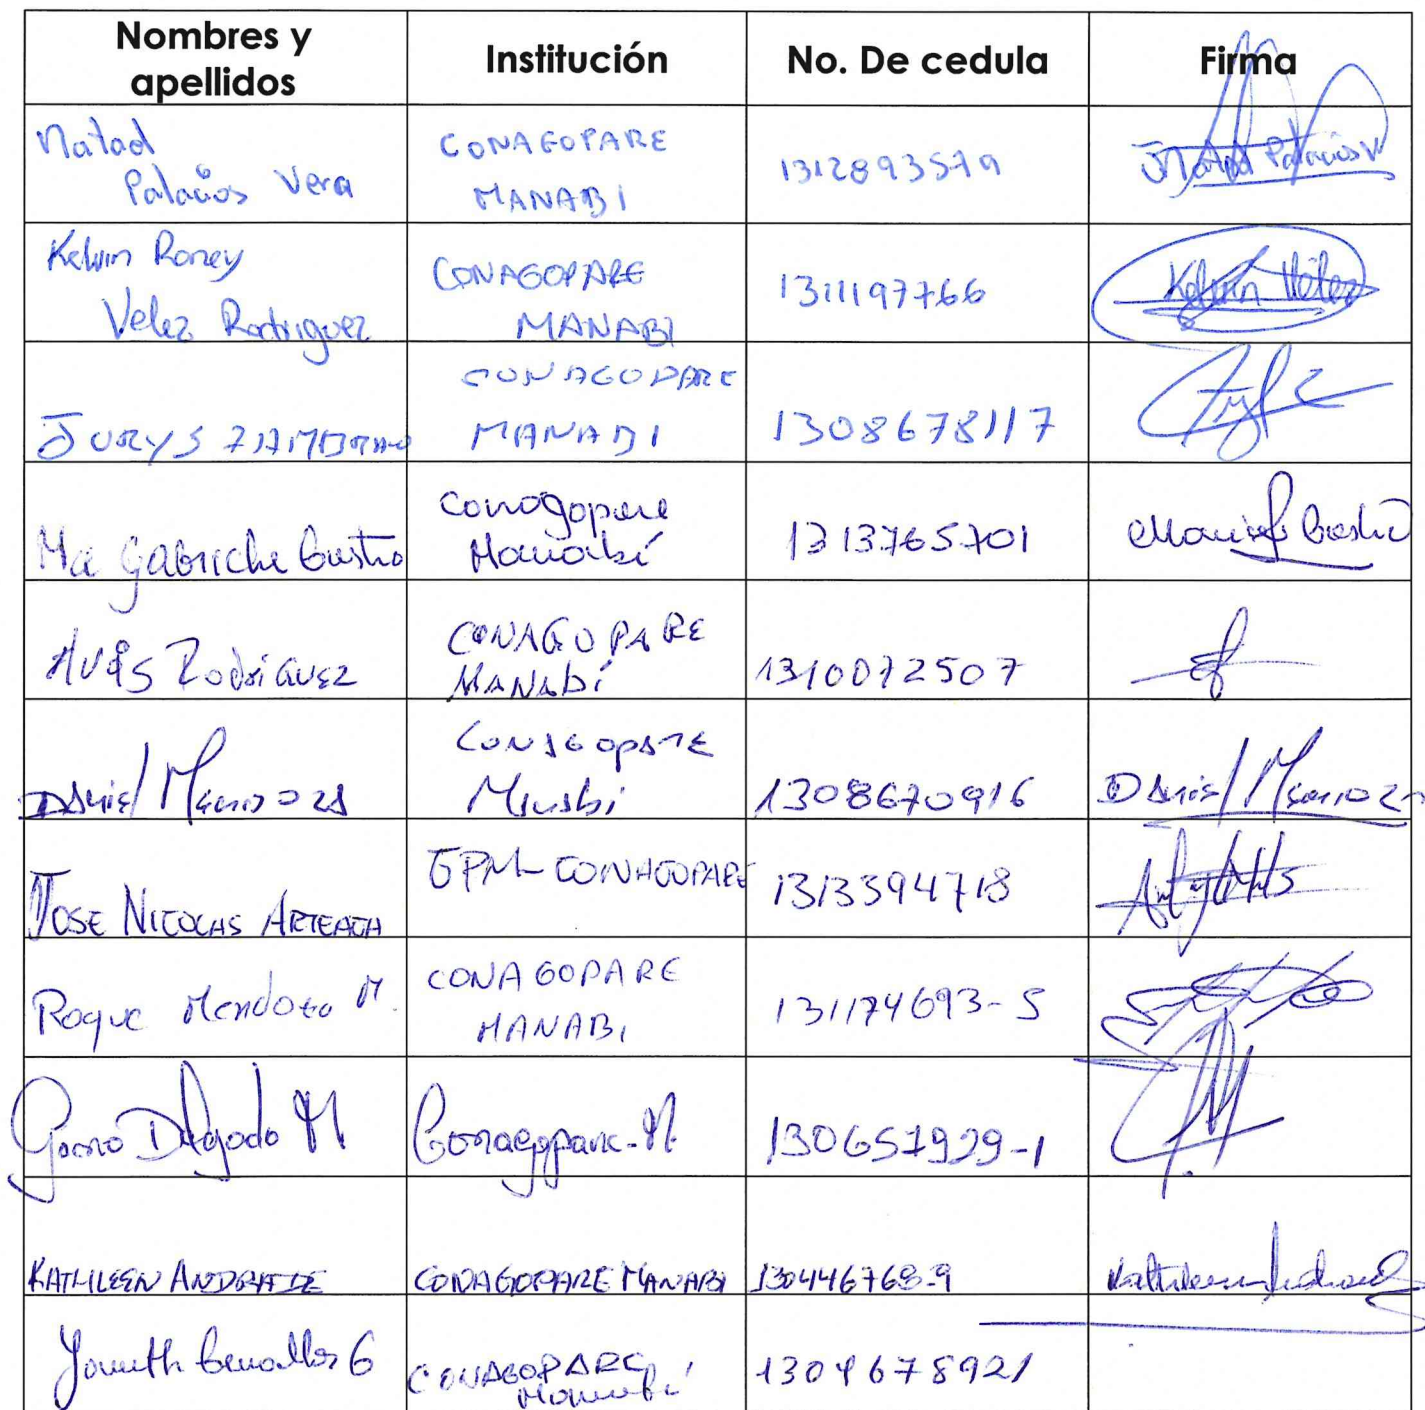 Nombres y
apellidos
Institución
No. De cedula
Firma
Natael
Palacios Vera
CONAGOPARE
MANABI
1312893579
Palacios V
Kelvin Roney
Velez Rodriguez
CONAGOPARE
MANABI
1311197766
Kelvin Vélez
JURYS ZAMBRANO
CONAGOPARE
MANABI
1308678117
Ma Gabriela Castro
Conagopare
Manabí
1313765701
Castro
Rodriguez
CONAGOPARE
MANAbí
1310072507
DANiel MENDOZA
CONAGOPARE
Manabi
1308670916
DANiel MENDOZA
JOSE NICOLAS ARTEAGA
GPM-CONAGOPARE
1313394718
Roque Mendoza M.
CONAGOPARE
MANABI
131174693-5
Delgado M
Conagopare-M
130657929-1
KATHLEEN ANDRADE
CONAGOPARE MANABI
130446768-9
Kathleen Andrade
CONAGOPARE
Manabí
1304678921